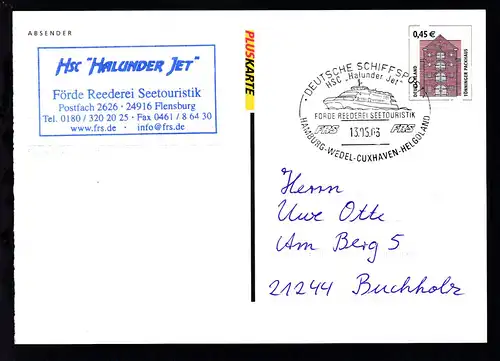 ABSENDER
HSC "HALUNDER JET"
Förde Reederei Seetouristik
Postfach 2626 · 24916 Flensburg
Tel. 0180 / 320 20 25 · Fax 0461 / 8 64 30
www.frs.de · info@frs.de
PLUSKARTE
· DEUTSCHE SCHIFFSPOST
HSC „Halunder Jet"
FÖRDE REEDEREI SEETOURISTIK
FRS FRS
13.05.03
HAMBURG-WEDEL-CUXHAVEN-HELGOLAND
0,45 €
DEUTSCHLAND
TÖNNINGER PACKHAUS
Herrn
Uwe Otte
Am Berg 5
21244 Buchholz